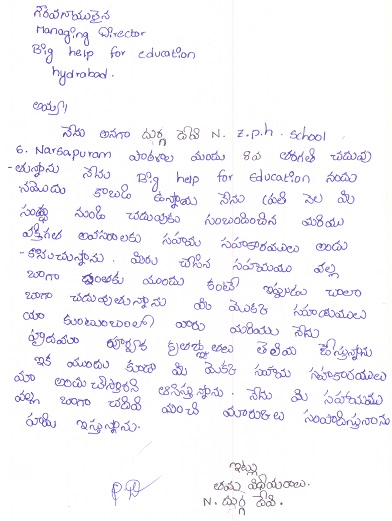 గౌరవనీయులైన
Managing Director
Big help for education
hydrabad.
అమ్మ!
నేను అనగా దుర్గ దేవి N. z.p.h. school
G. Narsapuram పాఠశాల యందు 8వ తరగతి చదువు
-తున్నాను నేను Big help for Education నందు
నమోదు కాబడి ఉన్నాను నేను ప్రతి నెల మీ
సంస్థ నుండి చదువుకు సంబందించిన మరియు
వ్యక్తిగత అవసరాలకు సహాయ సహకారములు అందు
-కొనుచున్నాను. మీరు చేసిన సహాయము వల్ల
బాగా ఇంతకు ముందు కంటే ఇప్పుడు చాలా
బాగా చదువుతున్నాను మీ యొక్క సహాయములు
మా కుటుంబంలో వారు మరియు నేను
హృదయ పూర్వక కృతజ్ఞతలు తెలియ చేస్తున్నాను
ఇక ముందు కూడా మీ యొక్క సహాయ సహకారములు
మా అందుచేస్తారని ఆశిస్తున్నాను. నేను మీ సహాయము
వల్ల బాగా చదివి మంచి మార్కులు సంపాదిస్తానను
హామి ఇస్తున్నాను.
ఇట్లు
తమ విధేయురాలు.
N. దుర్గ దేవి.